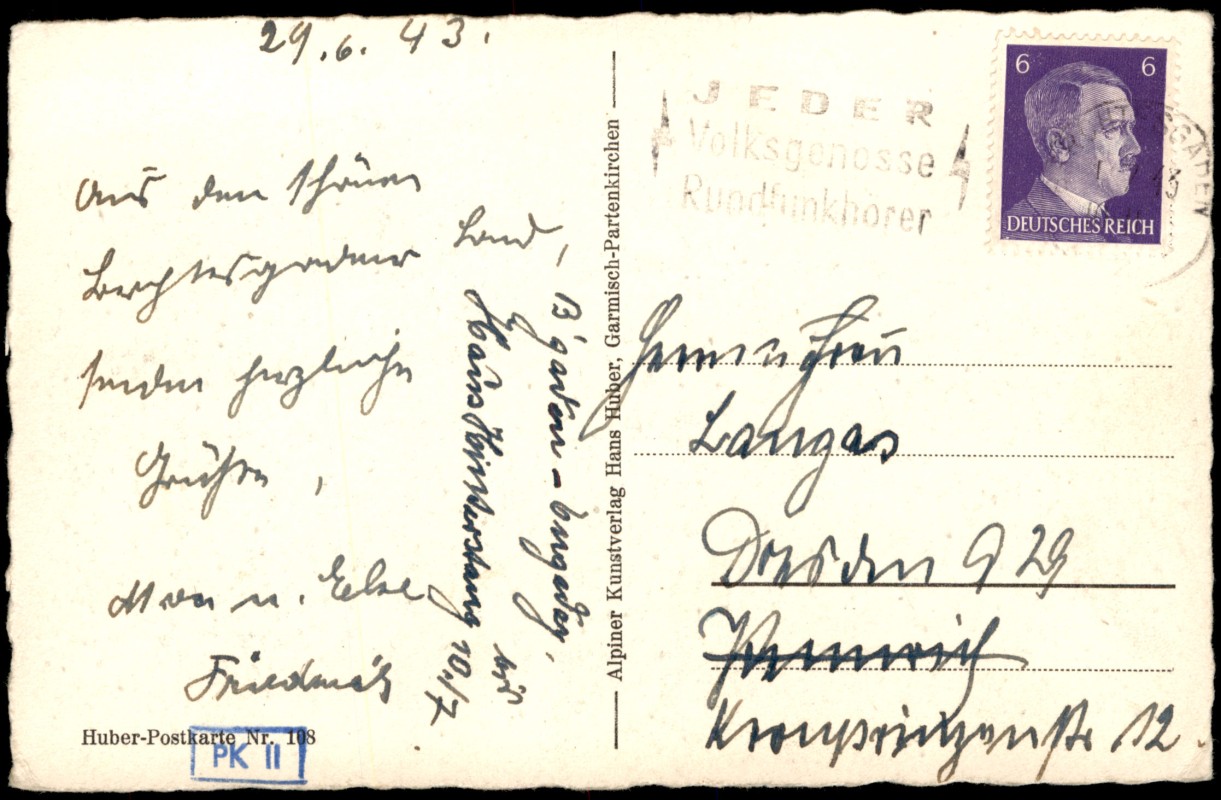 29.6.43.
Aus den schönen
Berchtesgadner Land,
senden herzliche
Grüße,
u. Else
Friedrich
B'gaden -
Haus
bis
10./7
Alpiner Kunstverlag Hans Huber, Garmisch-Partenkirchen
Huber-Postkarte Nr. 108
PK II
JEDER
Volksgenosse
Rundfunkhörer
6 6
DEUTSCHES REICH
BERCHTESGADEN
Herrn u Frau
Langas
Dresden A 29
Kronprinzenstr 12.